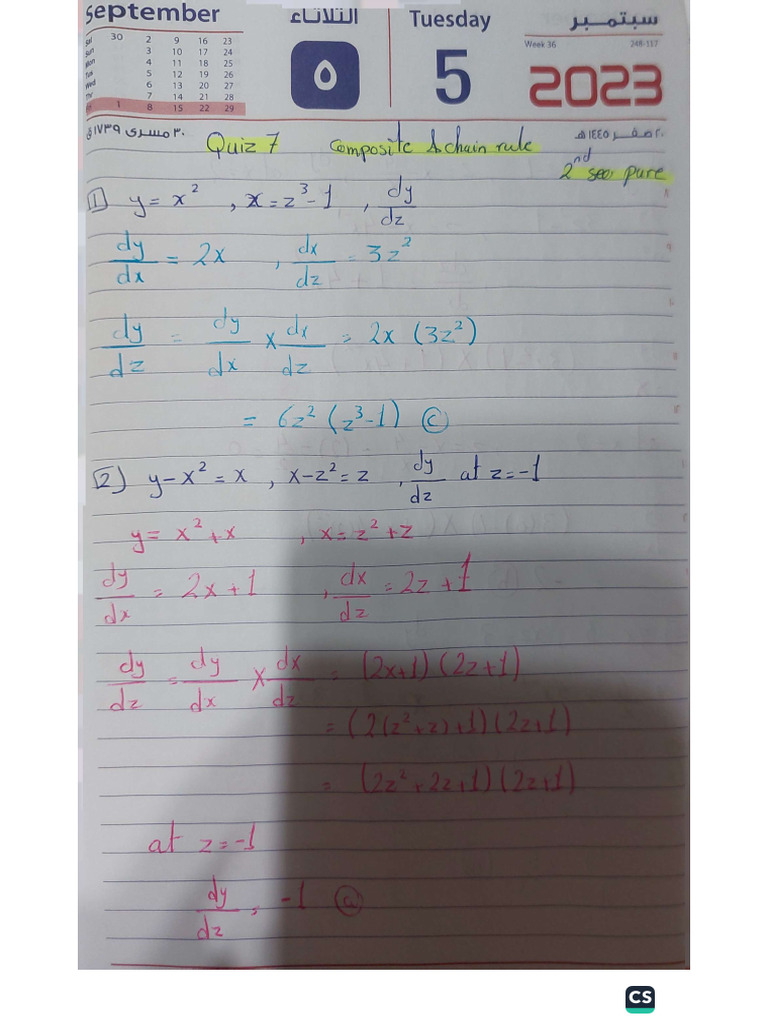 September
الثلاثاء
Tuesday
سبتمبر
Sat 30 2 9 16 23
Sun 3 10 17 24
Mon 4 11 18 25
Tue 5 12 19 26
Wed 6 13 20 27
Thr 7 14 21 28
Fri 1 8 15 22 29
٥
5
Week 36 248-117
2023
٣٠ مسرى ١٧٣٩ق
٢٠ صفر ١٤٤٥هـ
Quiz 7 Composite & chain rule
2nd sec, pure
1) y = x² , x = z³-1 , dy/dz
dy/dx = 2x , dx/dz = 3z²
dy/dz = dy/dx × dx/dz = 2x (3z²)
= 6z² (z³-1) (c)
2) y-x² = x , x-z² = z , dy/dz at z=-1
y = x²+x , x = z²+z
dy/dx = 2x+1 , dx/dz = 2z+1
dy/dz = dy/dx × dx/dz = (2x+1)(2z+1)
= (2(z²+z)+1)(2z+1)
= (2z²+2z+1)(2z+1)
at z=-1
dy/dz = -1 (a)
CS